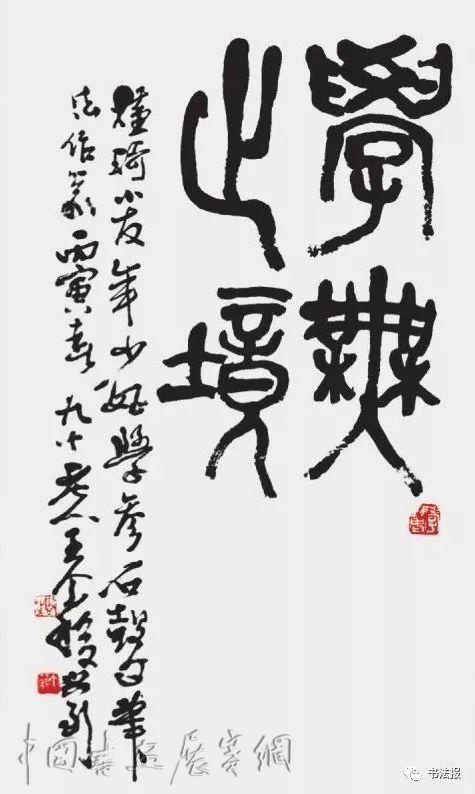 學無
止境
琦小友年少好學參石鼓文筆
法作篆丙寅春九十老人王个簃
中國書法展賽網
书法报